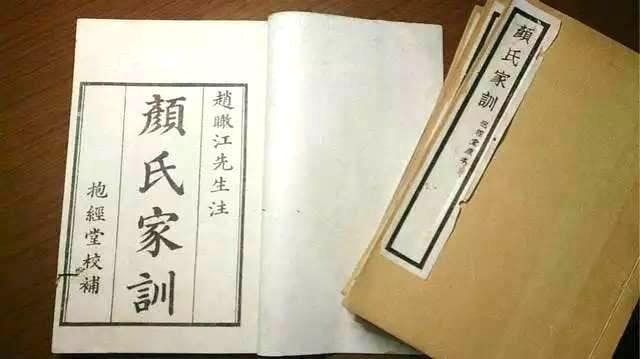 趙曒江先生注
顏氏家訓
抱經堂校補
顏氏家訓
抱經堂